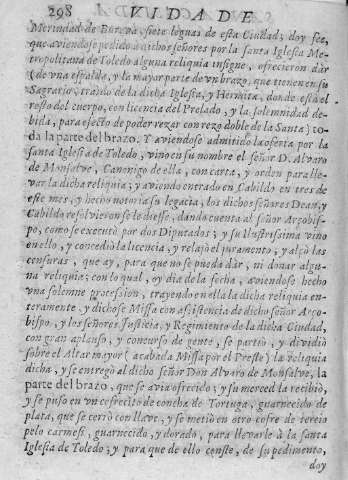 298 VIDA DE
Merindad de Bureva, siete leguas de esta Ciudad; doy fee,
que aviendose pedido a dichos señores por la santa Iglesia Me-
tropolitana de Toledo alguna reliquia insigne, ofrecieron dàr
(de vna espalda, y la mayor parte de vn brazo, que tienen en su
Sagrario, traìdo de la dicha Iglesia, y Hermita, donde està el
resto del cuerpo, con licencia del Prelado, y la solemnidad de-
bida, para efecto de poder rezar con rezo doble de la Santa) to-
da la parte del brazo. Y aviendose admitido la oferta por la
santa Iglesia de Toledo, vino en su nombre el señor D. Alvaro
de Monsalve, Canonigo de ella, con carta, y orden para lle-
var la dicha reliquia; y aviendo entrado en Cabildo en tres de
este mes, y hecho notoria su legacia, los dichos señores Dean, y
Cabildo resolvieron se le diesse, dando cuenta al señor Arçobis-
po, como se executò por dos Diputados; y su Ilustrissima vino
en ello, y concediò la licencia, y relaxò el juramento, y alçò las
censuras, que ay, para que no se pueda dàr, ni donar algu-
na reliquia; con lo qual, oy dia de la fecha, aviendose hecho
vna solemne procession, trayendo en ella la dicha reliquia en-
teramente, y dichose Missa con assistencia de dicho señor Arço-
bispo, y los señores Justicia, y Regimiento de la dicha Ciudad,
con gran aplauso, y concurso de gente, se partiò, y dividiò
sobre el Altar mayor (acabada Missa por el Preste) la reliquia
dicha, y se entregò al dicho señor Don Alvaro de Monsalve, la
parte del brazo, que se avia ofrecido; y su merced la recibiò,
y se puso en vn cofrecito de concha de Tortuga, guarnecido de
plata, que se cerrò con llave, y se metiò en otro cofre de tercio
pelo carmesi, guarnecido, y dorado, para llevarle à la santa
Iglesia de Toledo; y para que de ello conste, de su pedimento,
doy